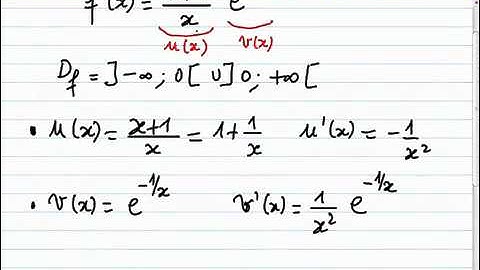 f(x) = x e
u(x) v(x)
D_f = ]-∞ ; 0[ U ]0 ; +∞[
• u(x) = x+1/x = 1 + 1/x u'(x) = -1/x²
• v(x) = e^(-1/x) v'(x) = 1/x² e^(-1/x)